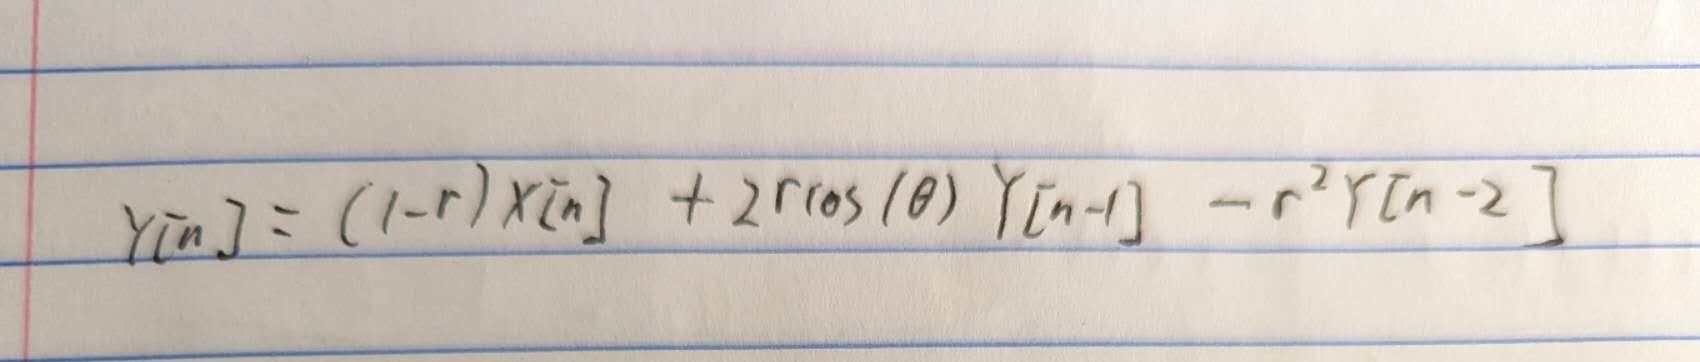 Y[n] = (1-r) X[n] + 2rcos(θ) Y[n-1] - r²Y[n-2]